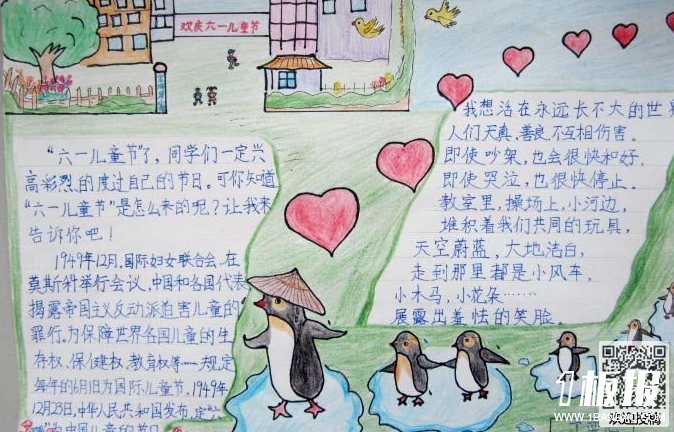 欢庆六一儿童节
“六一儿童节”了，同学们一定兴
高彩烈的度过自己的节日。可你知道
“六一儿童节”是怎么来的呢？让我来
告诉你吧！
1949年12月，国际妇女联合会，在
莫斯科举行会议，中国和各国代表
揭露帝国主义反动派迫害儿童的
罪行。为保障世界各国儿童的生
存权、保健权、教育权等一规定
每年的6月1日为国际儿童节，1949年
12月23日，中华人民共和国发布，定“六
为中国儿童的节日
我想活在永远长不大的世界
人们天真、善良、不互相伤害。
即使吵架，也会很快和好.
即使哭泣，也很快停止.
教室里，操场上，小河边，
堆积着我们共同的玩具，
天空蔚蓝，大地洁白，
走到那里都是小风车，
小木马，小花朵……
展露出羞怯的笑脸。
1板报
WWW.1BANBAO.COM
欢迎投稿